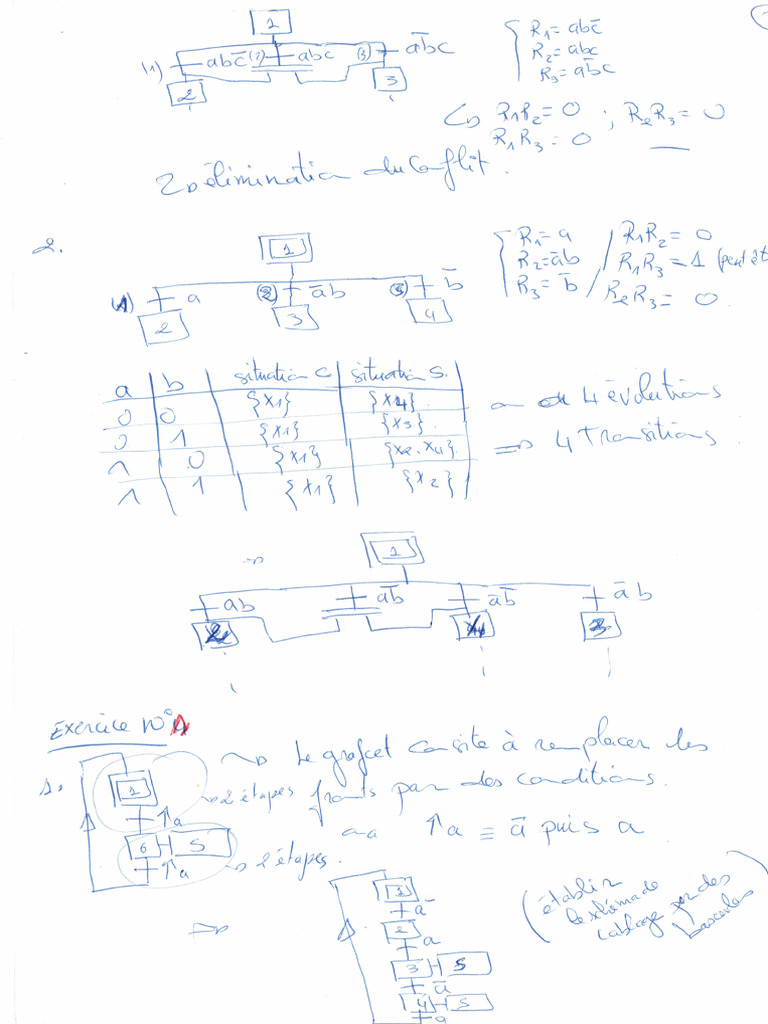 1
(1) ab𝑐̅ (2) abc (3) a̅bc
2 3
R₁ = abc̅
R₂ = abc
R₃ = a̅bc
R₁R₂ = 0 ; R₂R₃ = 0
R₁R₃ = 0
élimination du Conflit.
2.
1
(1) a (2) a̅b (3) b̅
2 3 4
R₁ = a / R₁R₂ = 0
R₂ = a̅b / R₁R₃ = 1 (peut êt
R₃ = b̅ / R₂R₃ = 0
a b situation C. situation S.
0 0 {X1} {X4}
0 1 {X1} {X3}
1 0 {X1} {X2, X4}
1 1 {X1} {X2}
4 évolutions
⇒ 4 transitions
1
ab ab̅ a̅b̅ a̅b
3
Exercice N°
1.
Le grafcet consite à remplacer les
fronts par des conditions.
↑a ≡ a̅ puis a
1
2 étapes
↑a
6 S
↑a
2 étapes.
⇒
1
a̅
2
a
3 S
a̅
4 S
a
(établir
le schéma de
câblage par des
bascules)